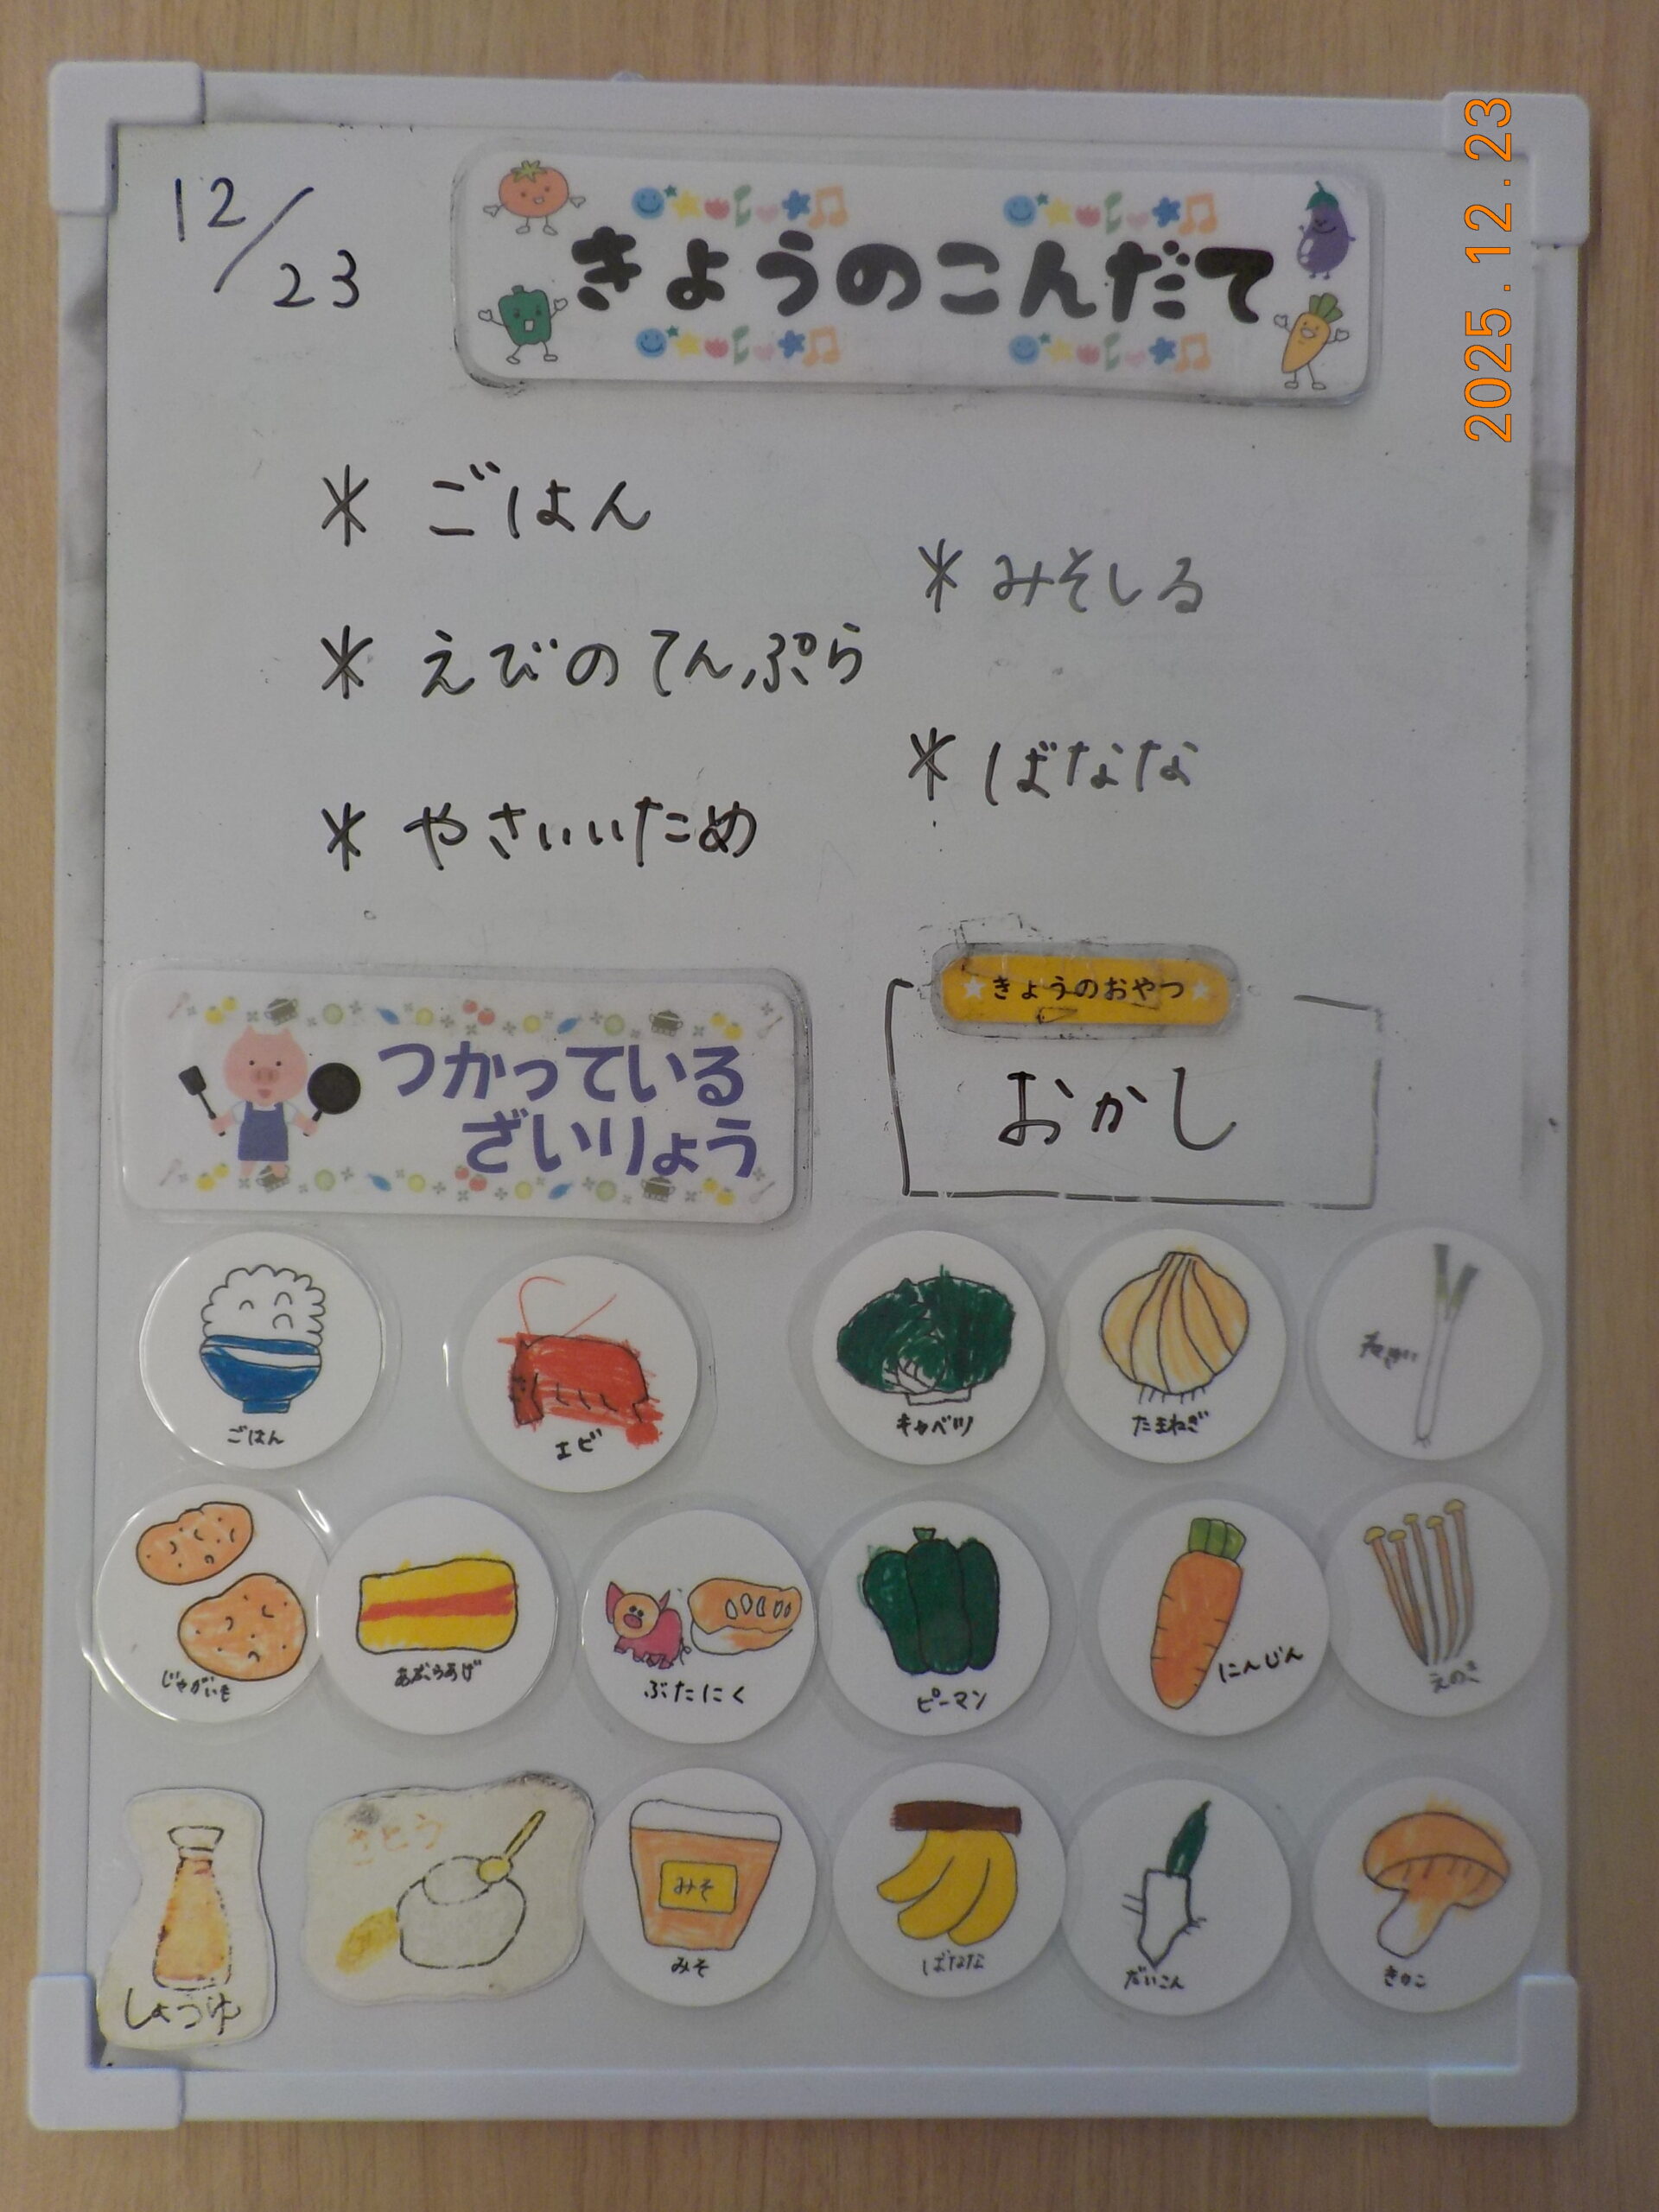 12/23
きょうのこんだて
2025.12.23
* ごはん
* えびのてんぷら
* やさいいため
* みそしる
* ばなな
つかっている
ざいりょう
きょうのおやつ
おかし
ごはん
エビ
キャベツ
たまねぎ
ねぎ
じゃがいも
あぶらあげ
ぶたにく
ピーマン
にんじん
えのき
しょうゆ
さとう
みそ
みそ
ばなな
だいこん
きのこ